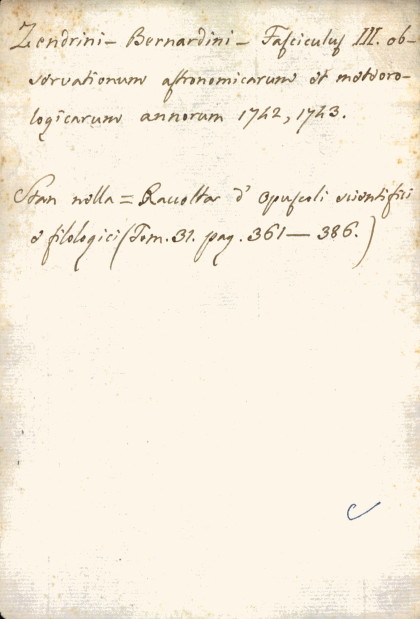 Zendrini - Bernardini - Fasciculus III. ob-
servationum astronomicarum et meteoro-
logicarum annorum 1742, 1743.
Stan nella = Raccolta d' opuscoli scientifici
e filologici (Tom. 31. pag. 361 — 386.)